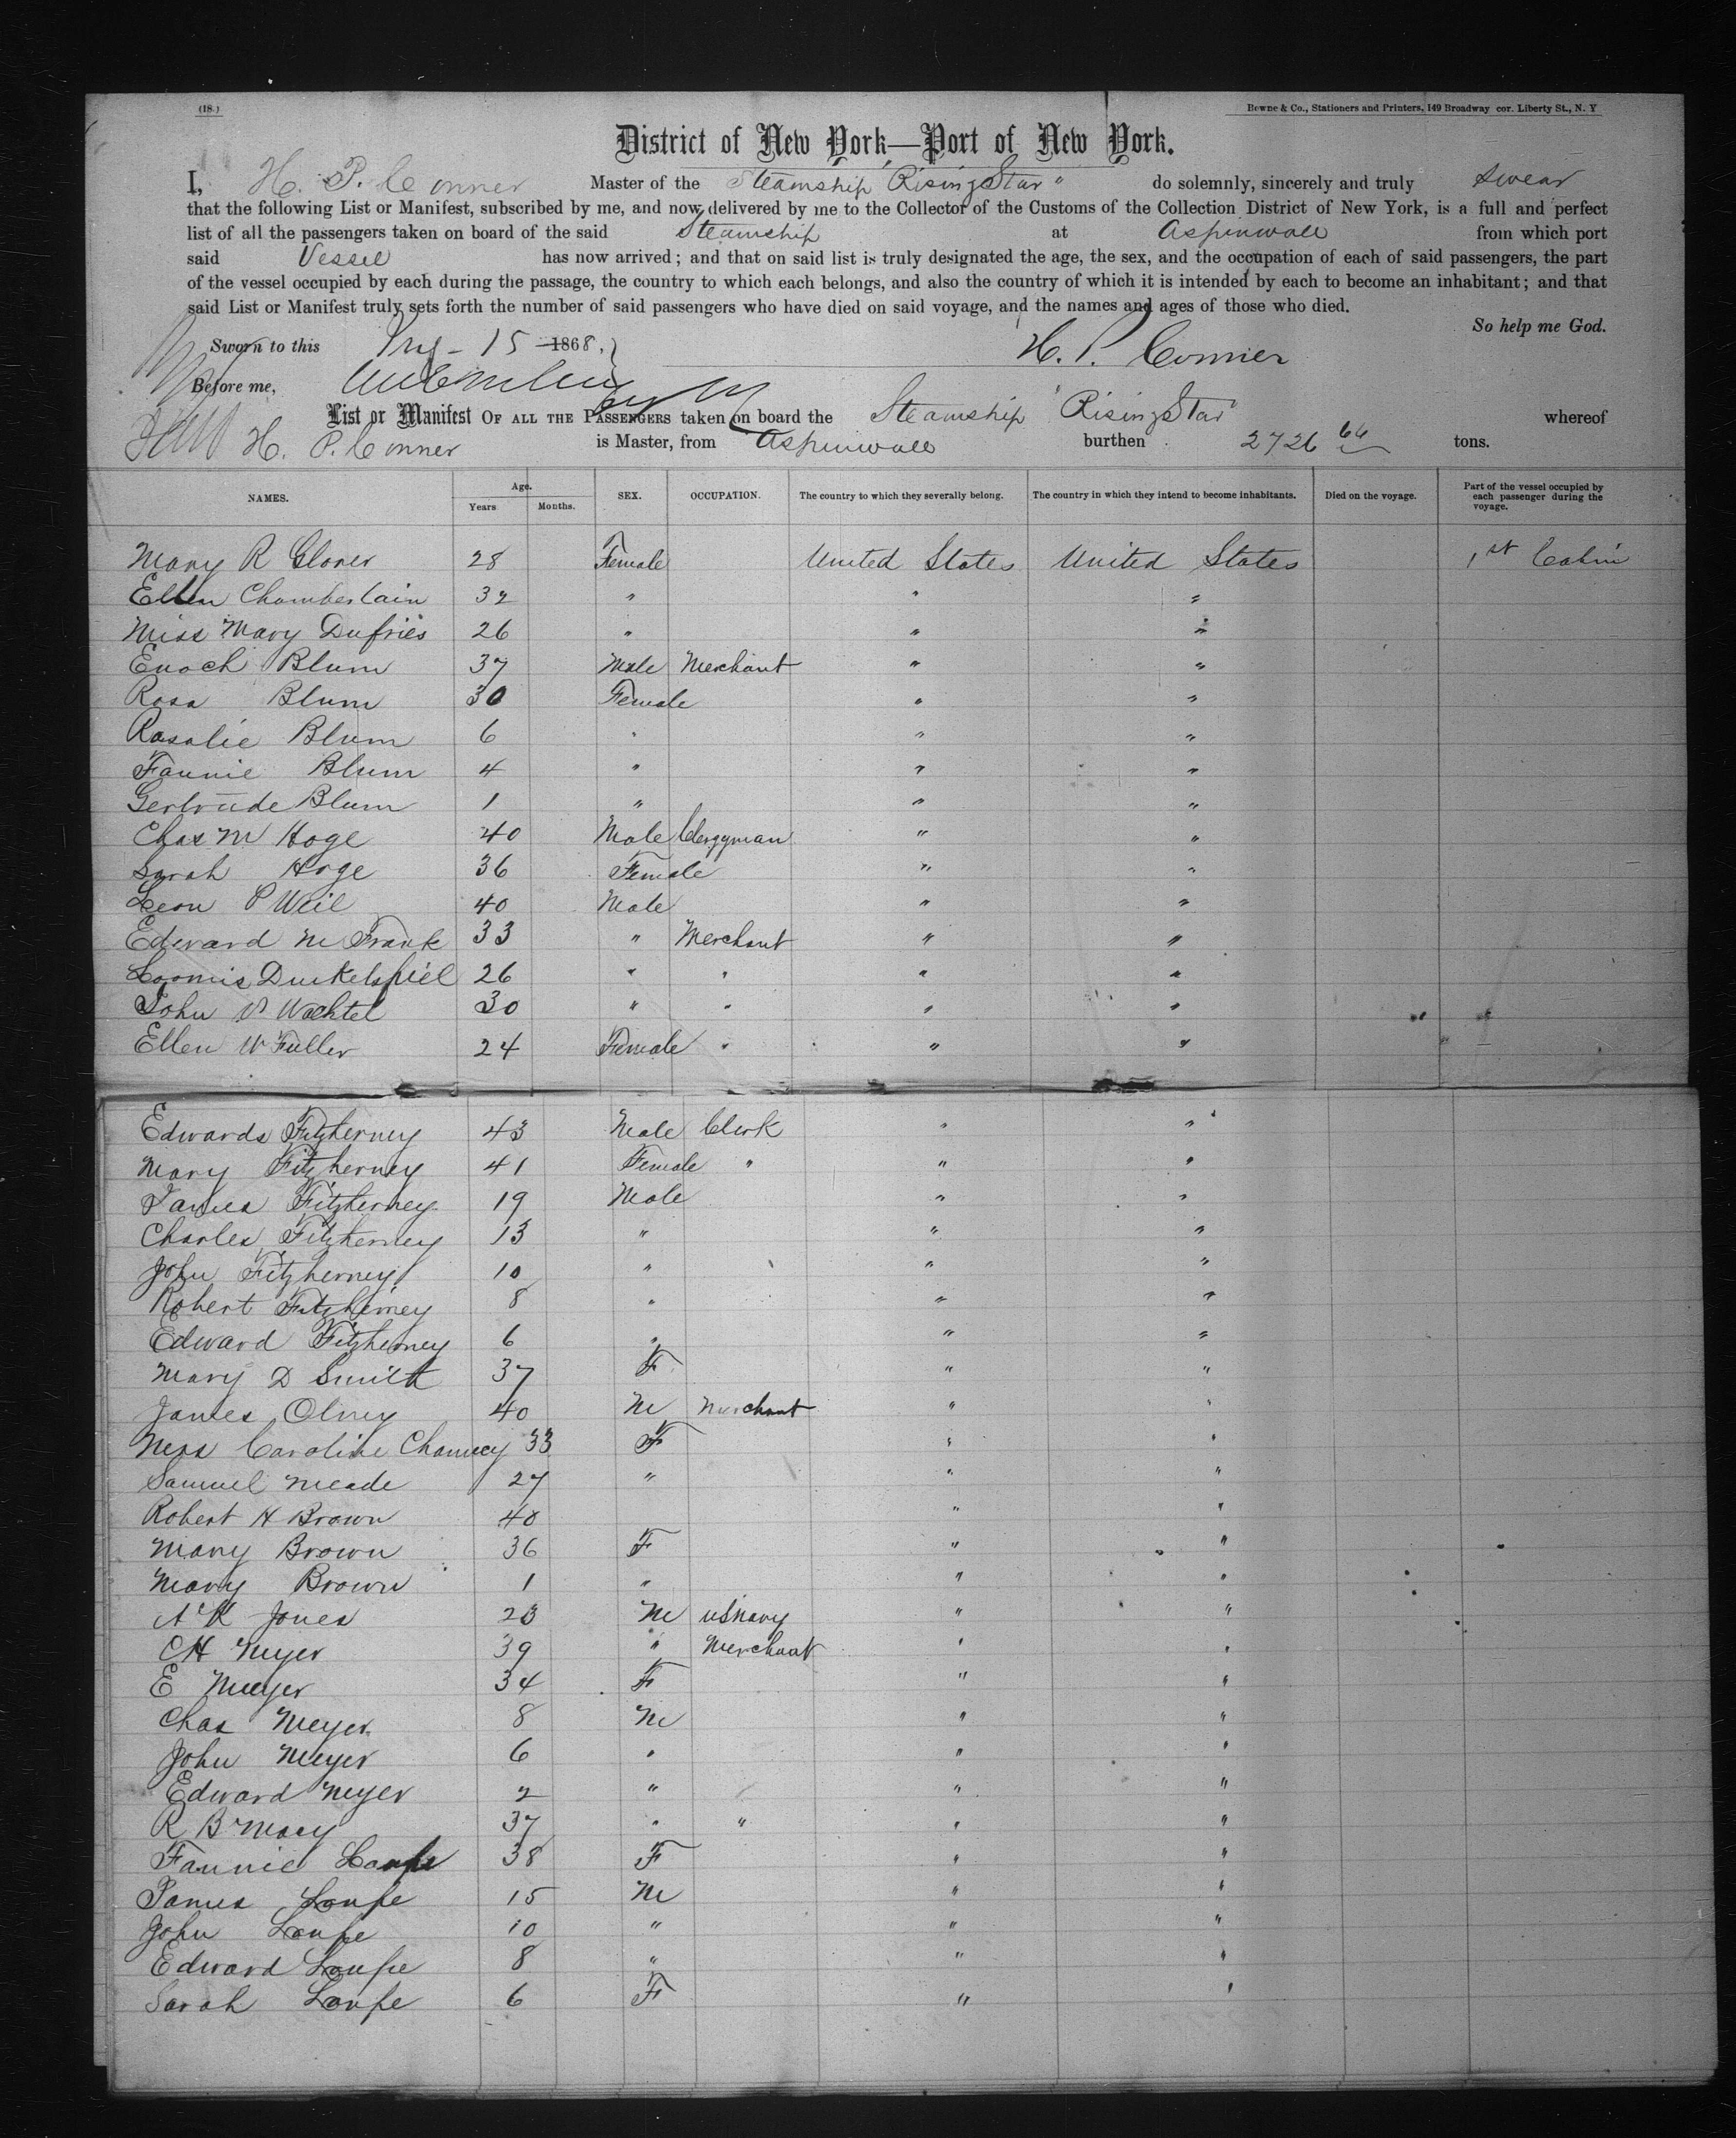 (18.)
Bowne & Co., Stationers and Printers, 149 Broadway cor. Liberty St., N. Y
District of New York—Port of New York.
I, H. P. Conner Master of the Steamship "Rising Star" do solemnly, sincerely and truly swear
that the following List or Manifest, subscribed by me, and now delivered by me to the Collector of the Customs of the Collection District of New York, is a full and perfect
list of all the passengers taken on board of the said Steamship at Aspinwall from which port
said Vessel has now arrived; and that on said list is truly designated the age, the sex, and the occupation of each of said passengers, the part
of the vessel occupied by each during the passage, the country to which each belongs, and also the country of which it is intended by each to become an inhabitant; and that
said List or Manifest truly sets forth the number of said passengers who have died on said voyage, and the names and ages of those who died.
So help me God.
Sworn to this 15 1868. H. P. Conner
Before me,
List or Manifest OF ALL THE PASSENGERS taken on board the Steamship "Rising Star" whereof
H. P. Conner is Master, from Aspinwall burthen 2726 66 tons.
NAMES. Age. Years Months. SEX. OCCUPATION. The country to which they severally belong. The country in which they intend to become inhabitants. Died on the voyage. Part of the vessel occupied by each passenger during the voyage.
Mary R Glover 28 Female United States United States 1st Cabin
Ellen Chamberlain 32 " " "
Miss Mary Dufries 26 " " "
Enoch Blum 37 Male Merchant " "
Rosa Blum 30 Female " "
Rosalie Blum 6 " " "
Fannie Blum 4 " " "
Gertrude Blum 1 " " "
Chas M Hoge 40 Male Clergyman " "
Sarah Hoge 36 Female " "
Leon P Weil 40 Male " "
Edward M Frank 33 " Merchant " "
Loomis Dunkelspiel 26 " " " "
John Wachtel 30 " " " "
Ellen W Fuller 24 Female " " "
Edwards Fitzherney 43 Male Clerk " "
Mary Fitzherney 41 Female " " "
James Fitzherney 19 Male " "
Charles Fitzherney 13 " " "
John Fitzherney 10 " " "
Robert Fitzherney 8 " " "
Edward Fitzherney 6 " " "
Mary D Smith 37 F " "
James Olney 40 M Merchant " "
Mrs Caroline Chauncey 33 F " "
Samuel Meade 27 " " "
Robert H Brown 40 " "
Mary Brown 36 F " "
Mary Brown 1 " " "
A K Jones 23 M US Navy " "
C H Meyer 39 " Merchant " "
E Meyer 34 F " "
Chas Meyer 8 M " "
John Meyer 6 " " "
Edward Meyer 2 " " "
R B Macy 37 " " " "
Fannie Loupe 38 F " "
James Loupe 15 M " "
John Loupe 10 " " "
Edward Loupe 8 " " "
Sarah Loupe 6 F " "